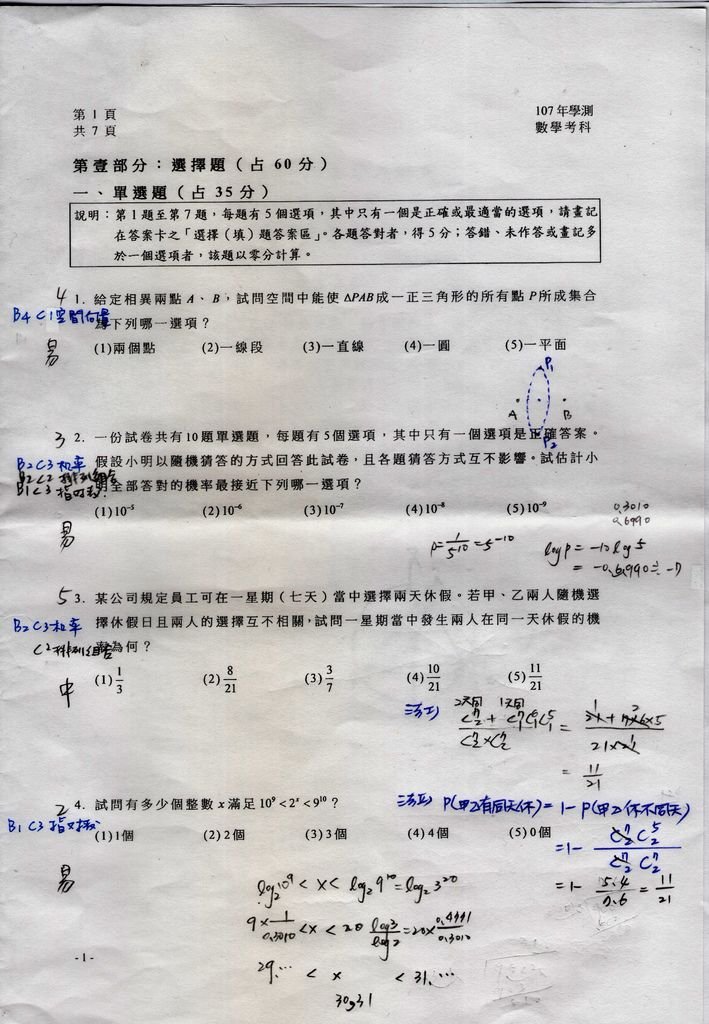 第 1 頁
共 7 頁
107 年學測
數學考科
第壹部分：選擇題（占 60 分）
一、單選題（占 35 分）
說明：第 1 題至第 7 題，每題有 5 個選項，其中只有一個是正確或最適當的選項，請畫記
在答案卡之「選擇（填）題答案區」。各題答對者，得 5 分；答錯、未作答或畫記多
於一個選項者，該題以零分計算。
4 1. 給定相異兩點 A、B，試問空間中能使 ΔPAB 成一正三角形的所有點 P 所成集合
B4 C1 空間向量
為下列哪一選項？
易
(1)兩個點 (2)一線段 (3)一直線 (4)一圓 (5)一平面
P1
A B
P2
3 2. 一份試卷共有10題單選題，每題有5個選項，其中只有一個選項是正確答案。
B2 C3 机率
假設小明以隨機猜答的方式回答此試卷，且各題猜答方式互不影響。試估計小
B2 C2 排列組合
B1 C3 指对数
明全部答對的機率最接近下列哪一選項？
(1)10⁻⁵ (2)10⁻⁶ (3)10⁻⁷ (4)10⁻⁸ (5)10⁻⁹
0.3010
0.6990
易
P=1/5¹⁰=5⁻¹⁰
log P = -10 log 5
= -0.6990 ≒ -7
5 3. 某公司規定員工可在一星期（七天）當中選擇兩天休假。若甲、乙兩人隨機選
B2 C3 机率
擇休假日且兩人的選擇互不相關，試問一星期當中發生兩人在同一天休假的機
C2 排列組合
率為何？
中
(1) 1/3 (2) 8/21 (3) 3/7 (4) 10/21 (5) 11/21
2天同 1天同
= 11/21
2 4. 試問有多少個整數 x 滿足 10⁹ < 2ˣ < 9¹⁰？
B1 C3 指对数
(1)1個 (2)2個 (3)3個 (4)4個 (5)0個
P(甲乙有同天休) = 1 - P(甲乙休不同天)
易
log₂10⁹ < x < log₂9¹⁰ = log₂3²⁰
= 1 - 5·4/7·6 = 11/21
9 × 1/0.3010 < x < 20 log3/log2 = 20 × 0.4771/0.3010
29.… < x < 31.…
30,31
-1-